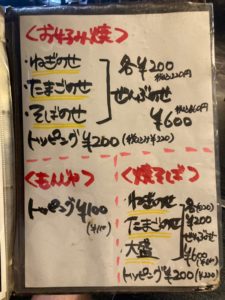 <お好み焼>
・ねぎのせ
・たまごのせ
・そばのせ
各¥200
(税込220円)
ぜんぶのせ
¥600
(税込660円)
トッピング¥200(税込¥220)
<もんじゃ>
トッピング¥100
(¥110)
<焼そば>
・ねぎのせ
・たまごのせ
・大盛
各(220)
¥200
ぜんぶのせ
¥600
(¥660)
トッピング¥200(¥220)